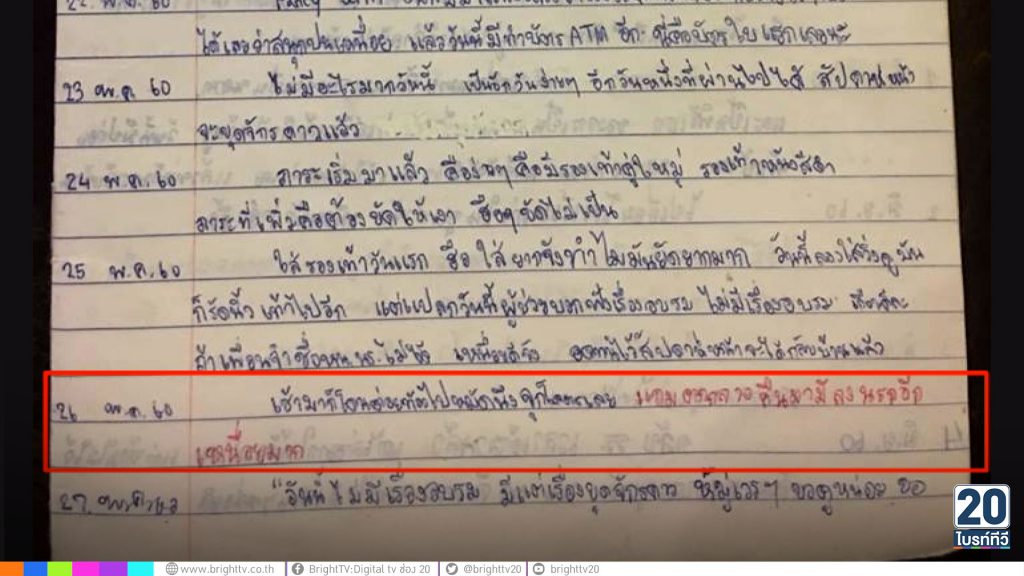 22 พ.ค. 60
ได้เลยว่าสนุกปนเหนื่อย แล้ววันนี้มีทำบัตร ATM อีก นี่คือบัตรใบแรกเลยนะ
23 พ.ค 60 ไม่มีอะไรมากวันนี้ เป็นอีกวันง่ายๆ อีกวันหนึ่งที่ผ่านไปได้ สัปดาห์หน้า
จะขุดจักรดาวแล้ว
24 พ.ค. 60 ภาระเริ่มมาแล้ว คือง่ายๆ คือมีรองเท้าคู่ใหม่ รองเท้าหนังสีดำ
ภาระที่เพิ่มคือต้องขัดให้เงา ฮือๆ ขัดไม่เป็น
25 พ.ค. 60 ใส่รองเท้าวันแรก ฮือ ใส่ยากจังทำไมมันยัดยากมาก วันนี้ลองใส่วิ่งดูมัน
ก็รัดนิ้วเท้าไปอีก แต่แปลกวันนี้ผู้ช่วยบอกฟังเรื่องอบรม ไม่มีเรื่องอบรม
ถ้าเพื่อนจำชื่อ ไม่ได้ เหนื่อย สัปดาห์หน้าจะได้กลับบ้านแล้ว
26 พ.ค. 60 เช้ามาก็โดน เลย แถมตอนกลางคืนมามีลงนรกอีก
เหนื่อยมาก
27 พ.ค. 60 "วันนี้ไม่มีเรื่องอบรม มีแต่เรื่องขุดจักรดาว
20
ไบรท์ทีวี
www.brighttv.co.th BrightTV:Digital tv ช่อง 20 @brighttv20 brighttv20